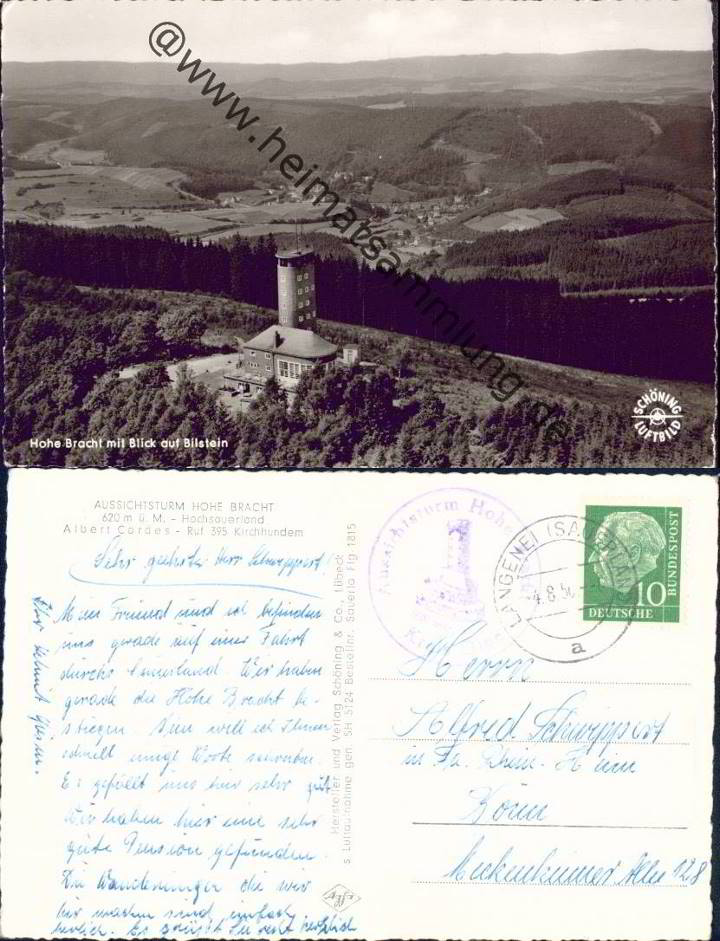 @www.heimatsammlung.de
Hohe Bracht mit Blick auf Bilstein
SCHÖNING
LUFTBILD
AUSSICHTSTURM HOHE BRACHT
620 m ü. M. – Hochsauerland
Albert Cordes – Ruf 395 Kirchhundem
Sehr geehrter Herr Schweppert!
Mein Freund und ich befinden
uns gerade auf einer Fahrt
durchs Sauerland. Wir haben
gerade die Hohe Bracht be-
stiegen. Nun will ich Ihnen
schnell einige Worte schreiben.
Es gefällt uns hier sehr gut
Wir haben hier eine sehr
gute Pension gefunden.
Die Wanderungen die wir
hier machen sind einfach
herrlich. Es grüßt Sie recht herzlich
Ihr
Hersteller und Verlag Schöning & Co., Lübeck
s. Luftaufnahme gen. SH 5724 Bestellnr. Sauerla Flg 1815
Aussichtsturm Hohe
LANGENEI (SAUERLAND)
a
10
DEUTSCHE
BUNDESPOST
Herrn
Alfred Schweppert
in Fa. Rhein.
Bonn
Meckenheimer Allee 128